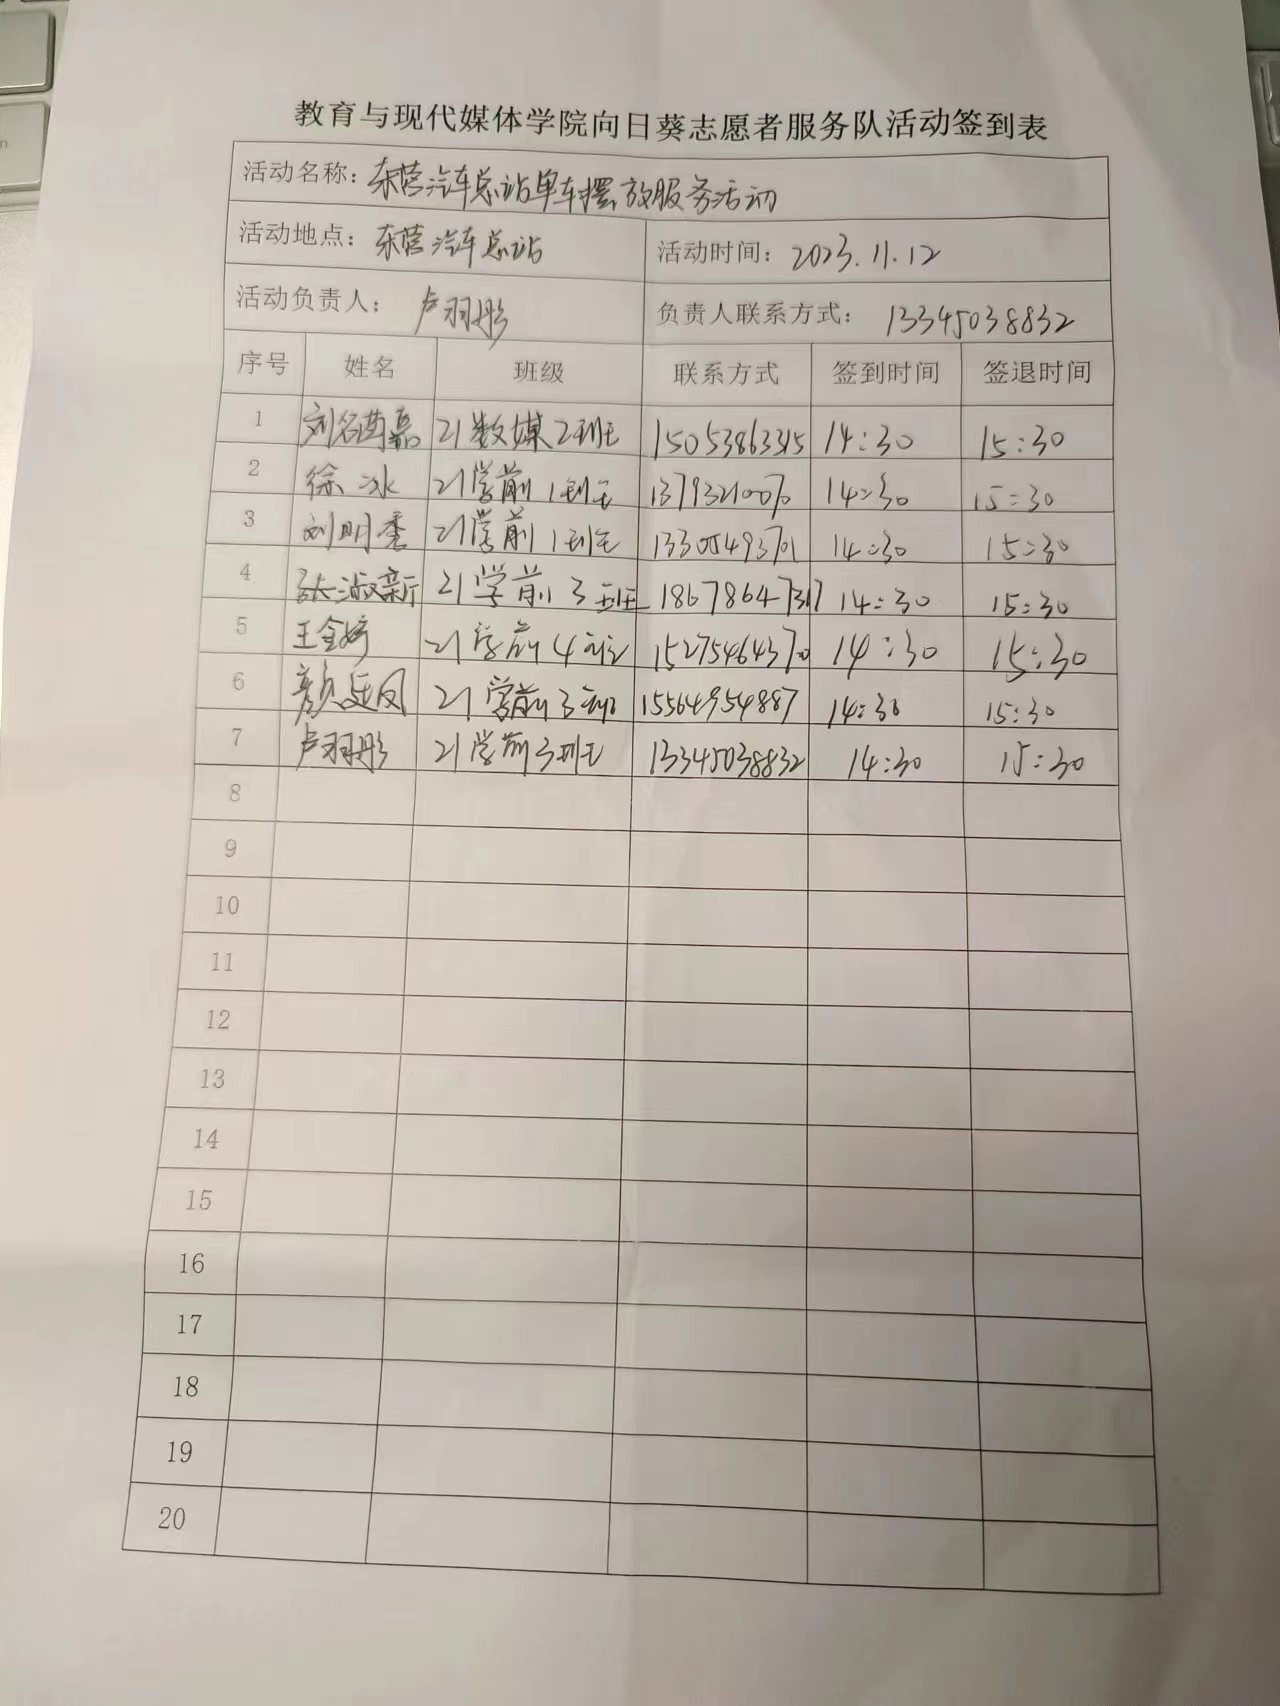 教育与现代媒体学院向日葵志愿者服务队活动签到表
活动名称：东营汽车总站单车摆放服务活动
活动地点：东营汽车总站 活动时间：2023.11.12
活动负责人：卢羽彤 负责人联系方式：13345038832
序号 姓名 班级 联系方式 签到时间 签退时间
1 刘名茜嘉 21数媒2班 15053863315 14:30 15:30
2 徐冰 21学前1班 13793210070 14:30 15:30
3 刘明 21学前1班 14:30 15:30
4 张淑新 21学前3班 18678647317 14:30 15:30
5 王金婷 21学前4班 15275464370 14:30 15:30
6 颜廷凤 21学前3班 15564954887 14:30 15:30
7 卢羽彤 21学前3班 13345038832 14:30 15:30
8
9
10
11
12
13
14
15
16
17
18
19
20